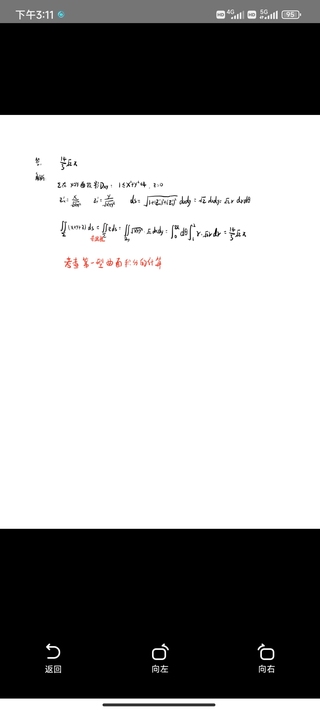 下午3:11 HD 4G HD 5G 95
答. 14/3 √2 π
解析:
Σ在 xoy 面投影Dxy: 1≤x²+y²≤4, z=0
Zx'= x/√(x²+y²) Zy'= y/√(x²+y²) ds= √(1+Zx'²+Zy'²) dxdy = √2 dxdy = √2 r drdθ
∬Σ (x+y+z) ds = ∬Σ z ds = ∬Dxy √(x²+y²)·√2 dxdy = ∫₀^2π dθ ∫₁² r·√2 r dr = 14/3 √2 π
考查第一型曲面积分的计算
返回 向左 向右